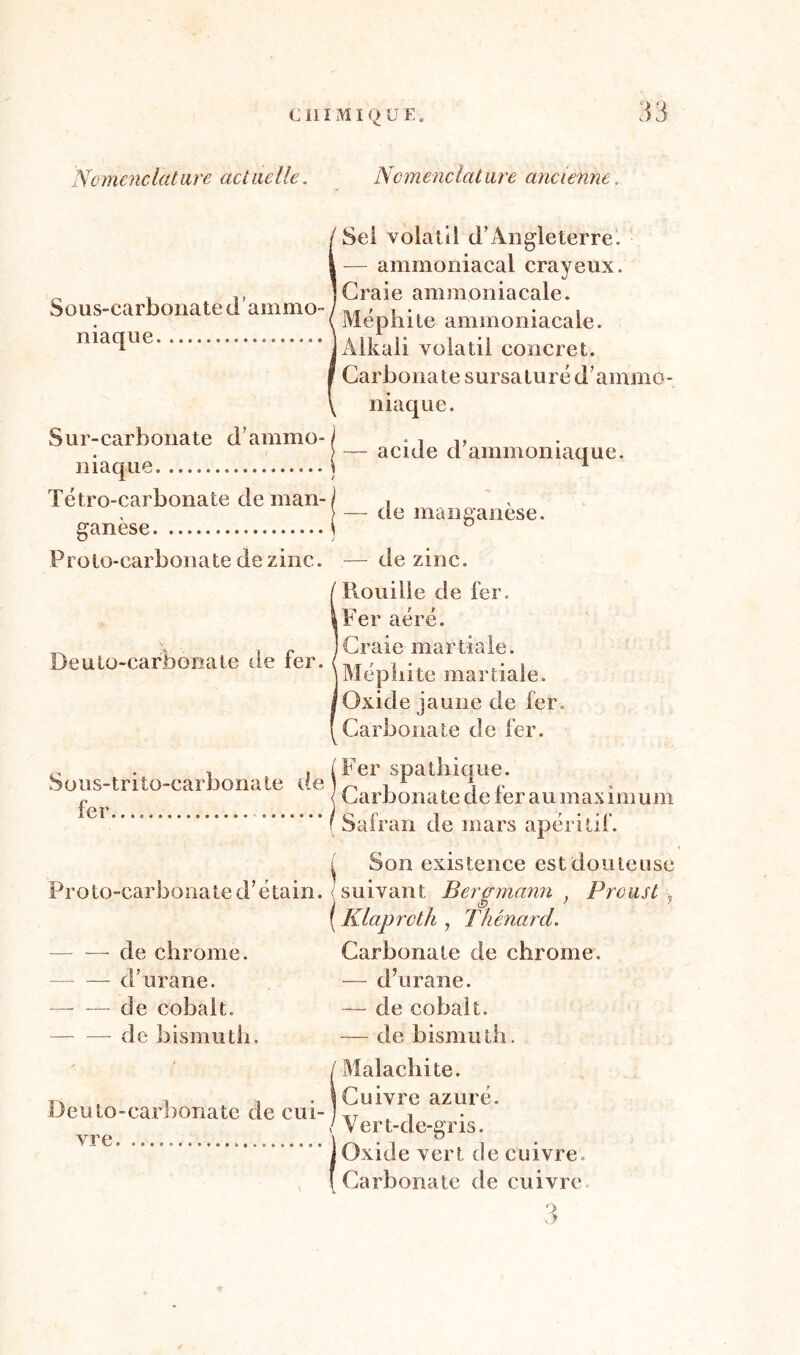 CHIMIQUE. 33
Nomenclature actuelle. Nomenclature ancienne.
Sel volatil d'Angleterre.
— ammoniacal crayeux.
Craie ammoniacale.
Sous-carbonate d'ammo-
Méphite ammoniacale.
niaque....................
Alkali volatil concret.
Carbonate sursaturé d'ammo-
niaque.
Sur-carbonate d'ammo-
niaque.................... — acide d'ammoniaque.
Tétro-carbonate de man-
ganèse.................... — de manganèse.
Proto-carbonate de zinc. — de zinc.
Rouille de fer.
Fer aéré.
Craie martiale.
Deuto-carbonate de fer.
Méphite martiale.
Oxide jaune de fer.
Carbonate de fer.
Sous-trito-carbonate de Fer spathique.
Carbonate de fer au maximum
fer....................
Safran de mars apéritif.
Son existence est douteuse
Proto-carbonate d'étain. suivant Bergmann, Proust,
Klaproth, Thénard.
— — de chrome. Carbonate de chrome.
— — d'urane. — d'urane.
— — de cobalt. — de cobalt.
— — de bismuth. — de bismuth.
Malachite.
Cuivre azuré.
Deuto-carbonate de cui-
Vert-de-gris.
vre....................
Oxide vert de cuivre.
Carbonate de cuivre.
3